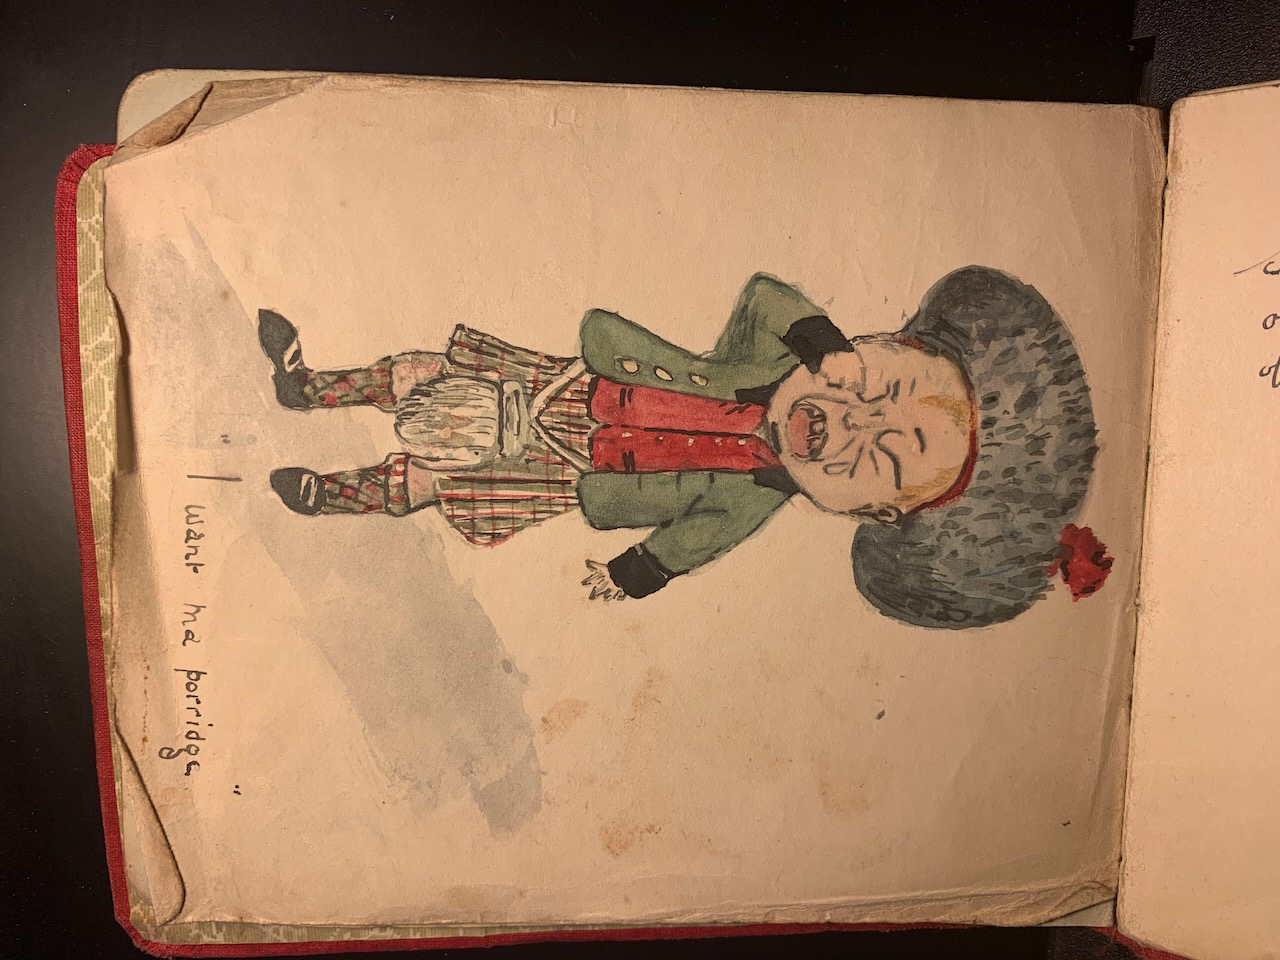 "I want ma porridge"